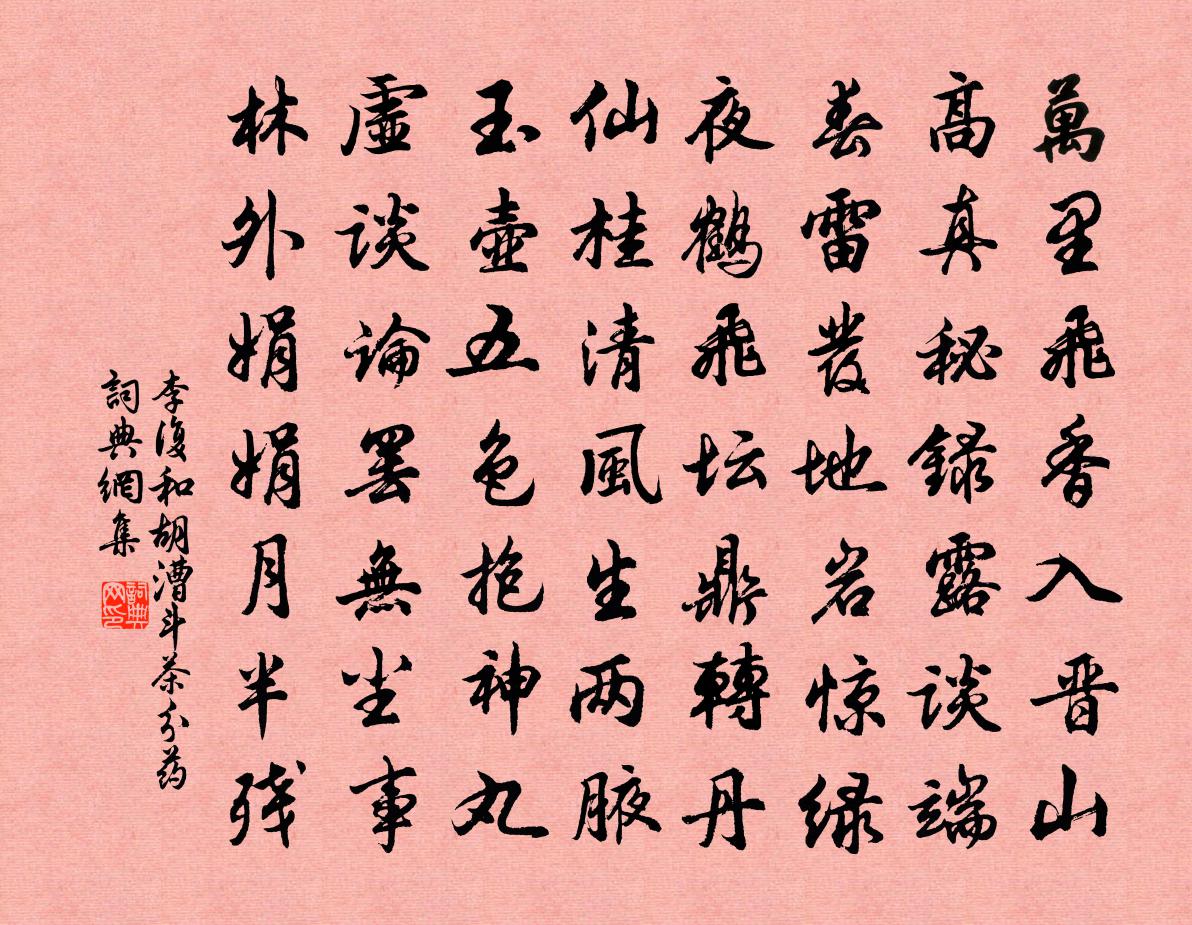 萬里飛香入晋山
高真秘録露談端
春雷發地岩惊緑
夜鶴飛坛鼎轉丹
仙桂清風生两腋
玉壺五色抱神丸
虛談論罢無尘事
林外娟娟月半残
李復和胡漕斗茶分药
詞典網集
詞典网印